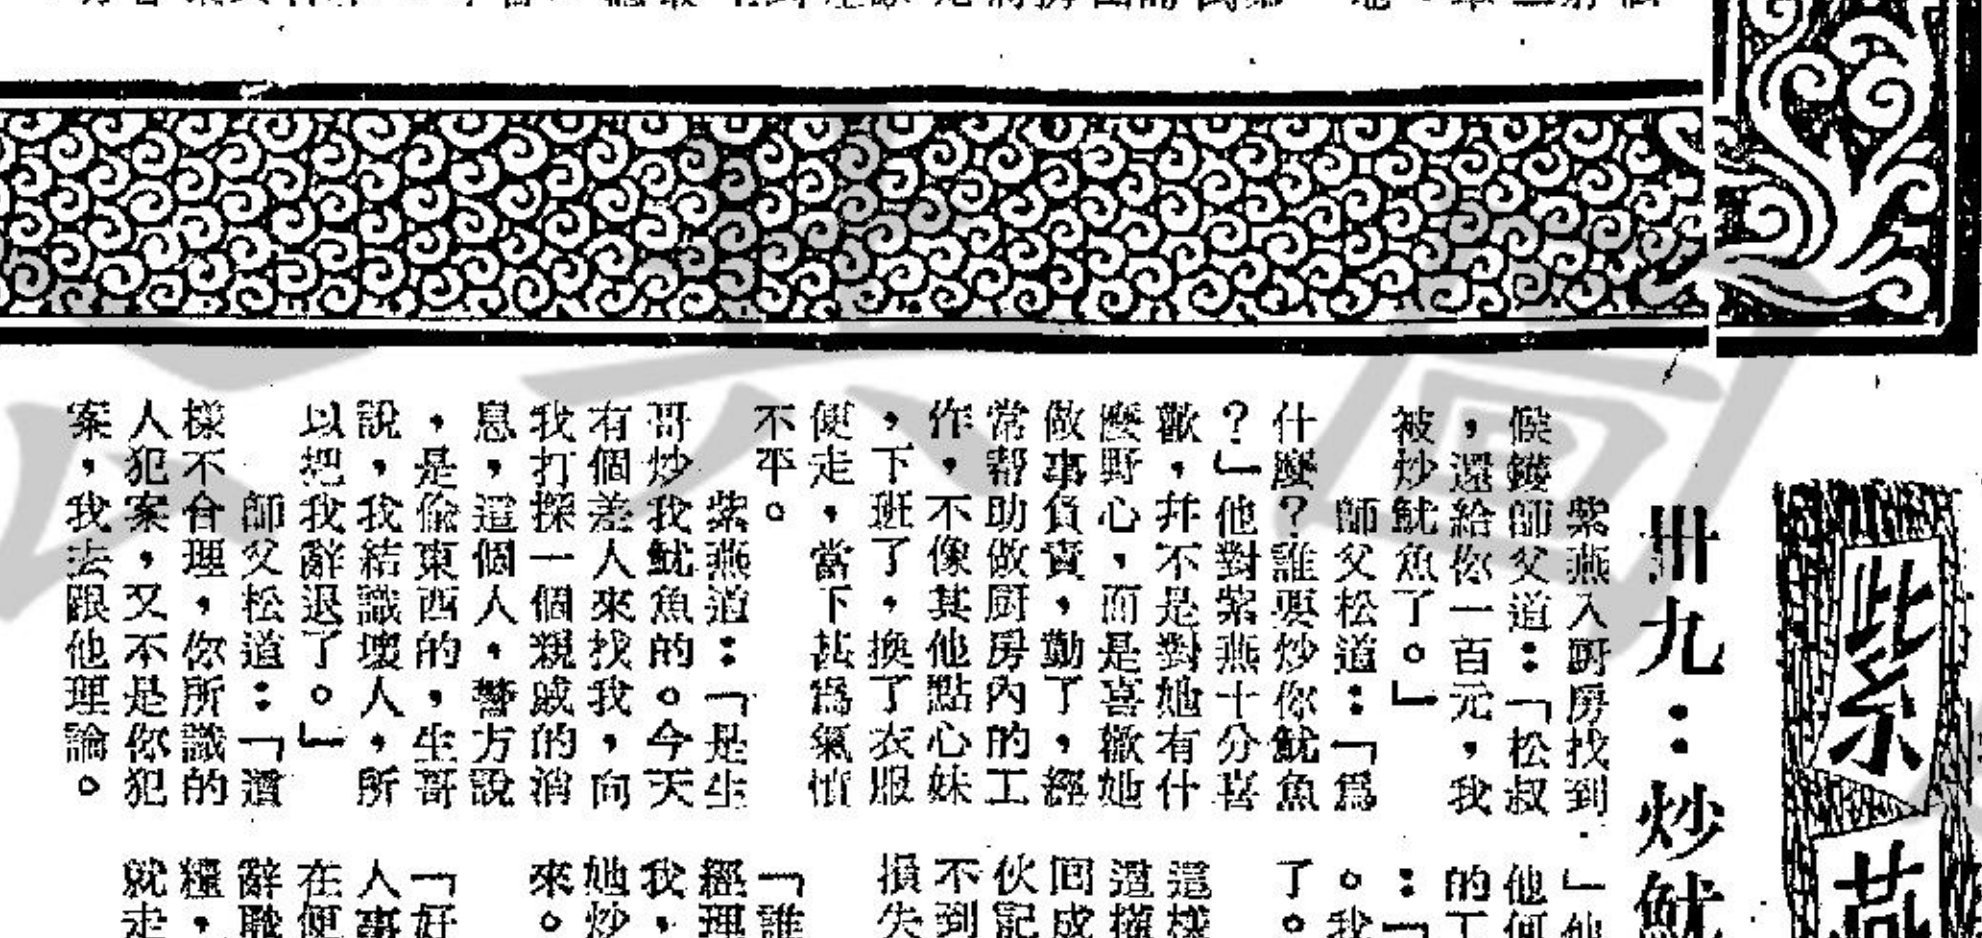 紫燕
卅九：炒魷
紫燕入厨房找到
候鑊師父道：「松叔
，還給你一百元，我
被炒魷魚了。」
師父松道：「爲
什麼？誰要炒你魷魚
？」他對紫燕十分喜
歡，幷不是對她有什
麼野心，而是喜歡她
做事負責，勤了，經
常帮助做厨房內的工
作，不像其他點心妹
，下班了，換了衣服
便走，當下甚爲氣憤
不平。
紫燕道：「是生
哥炒我魷魚的。今天
有個差人來找我，向
我打探一個親戚的消
息，這個人，警方說
，是偷東西的，生哥
說，我結識壞人，所
以把我辭退了。」
師父松道：「這
樣不合理，你所識的
人犯案，又不是你犯
案，我去跟他理論。
」他
他何
的工
：「
。我
了。
這樣
這樣
囘成
伙記
不到
損失
「誰
經理
我，
她炒
來。
「好
人事
在便
辭職
糧，
就走